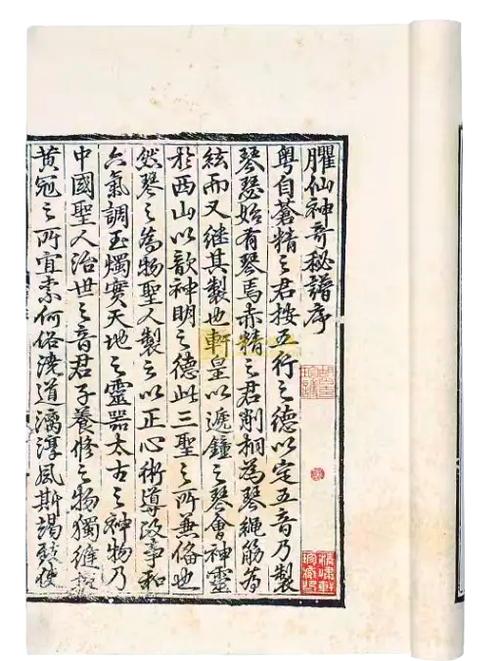 臞仙神奇秘譜序
粤自蒼精之君按五行之德以定五音乃製
琴瑟始有琴焉赤精之君削桐為琴繩筋為
絃而又継其製也軒皇以遞鐘之琴會神靈
於西山以歆神明之德此三聖之所無俻也
然琴之為物聖人製之以正心術導政事和
六氣調玉燭實天地之靈器太古之神物乃
中國聖人治世之音君子養修之物獨縫掖
黄冠之所宜索何俗澆道漓淳風斯竭致使